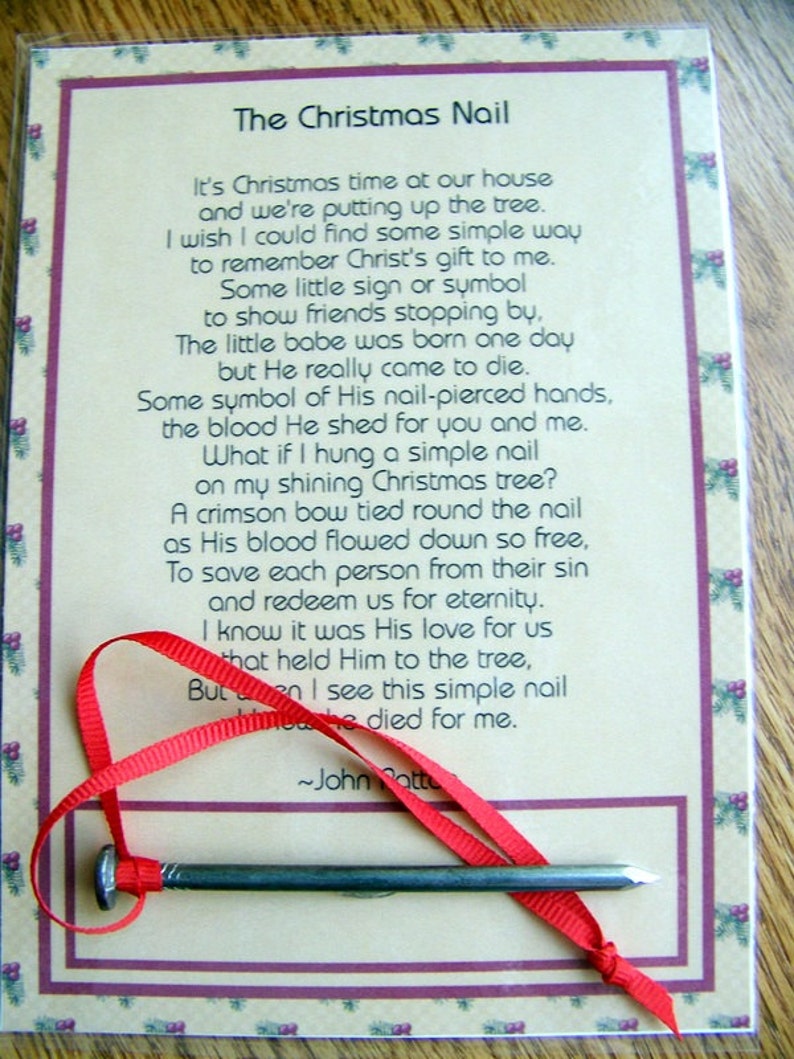 The Christmas Nail
It's Christmas time at our house
and we're putting up the tree.
I wish I could find some simple way
to remember Christ's gift to me.
Some little sign or symbol
to show friends stopping by,
The little babe was born one day
but He really came to die.
Some symbol of His nail-pierced hands,
the blood He shed for you and me.
What if I hung a simple nail
on my shining Christmas tree?
A crimson bow tied round the nail
as His blood flowed down so free,
To save each person from their sin
and redeem us for eternity.
I know it was His love for us
that held Him to the tree,
But when I see this simple nail
I know he died for me.
~John